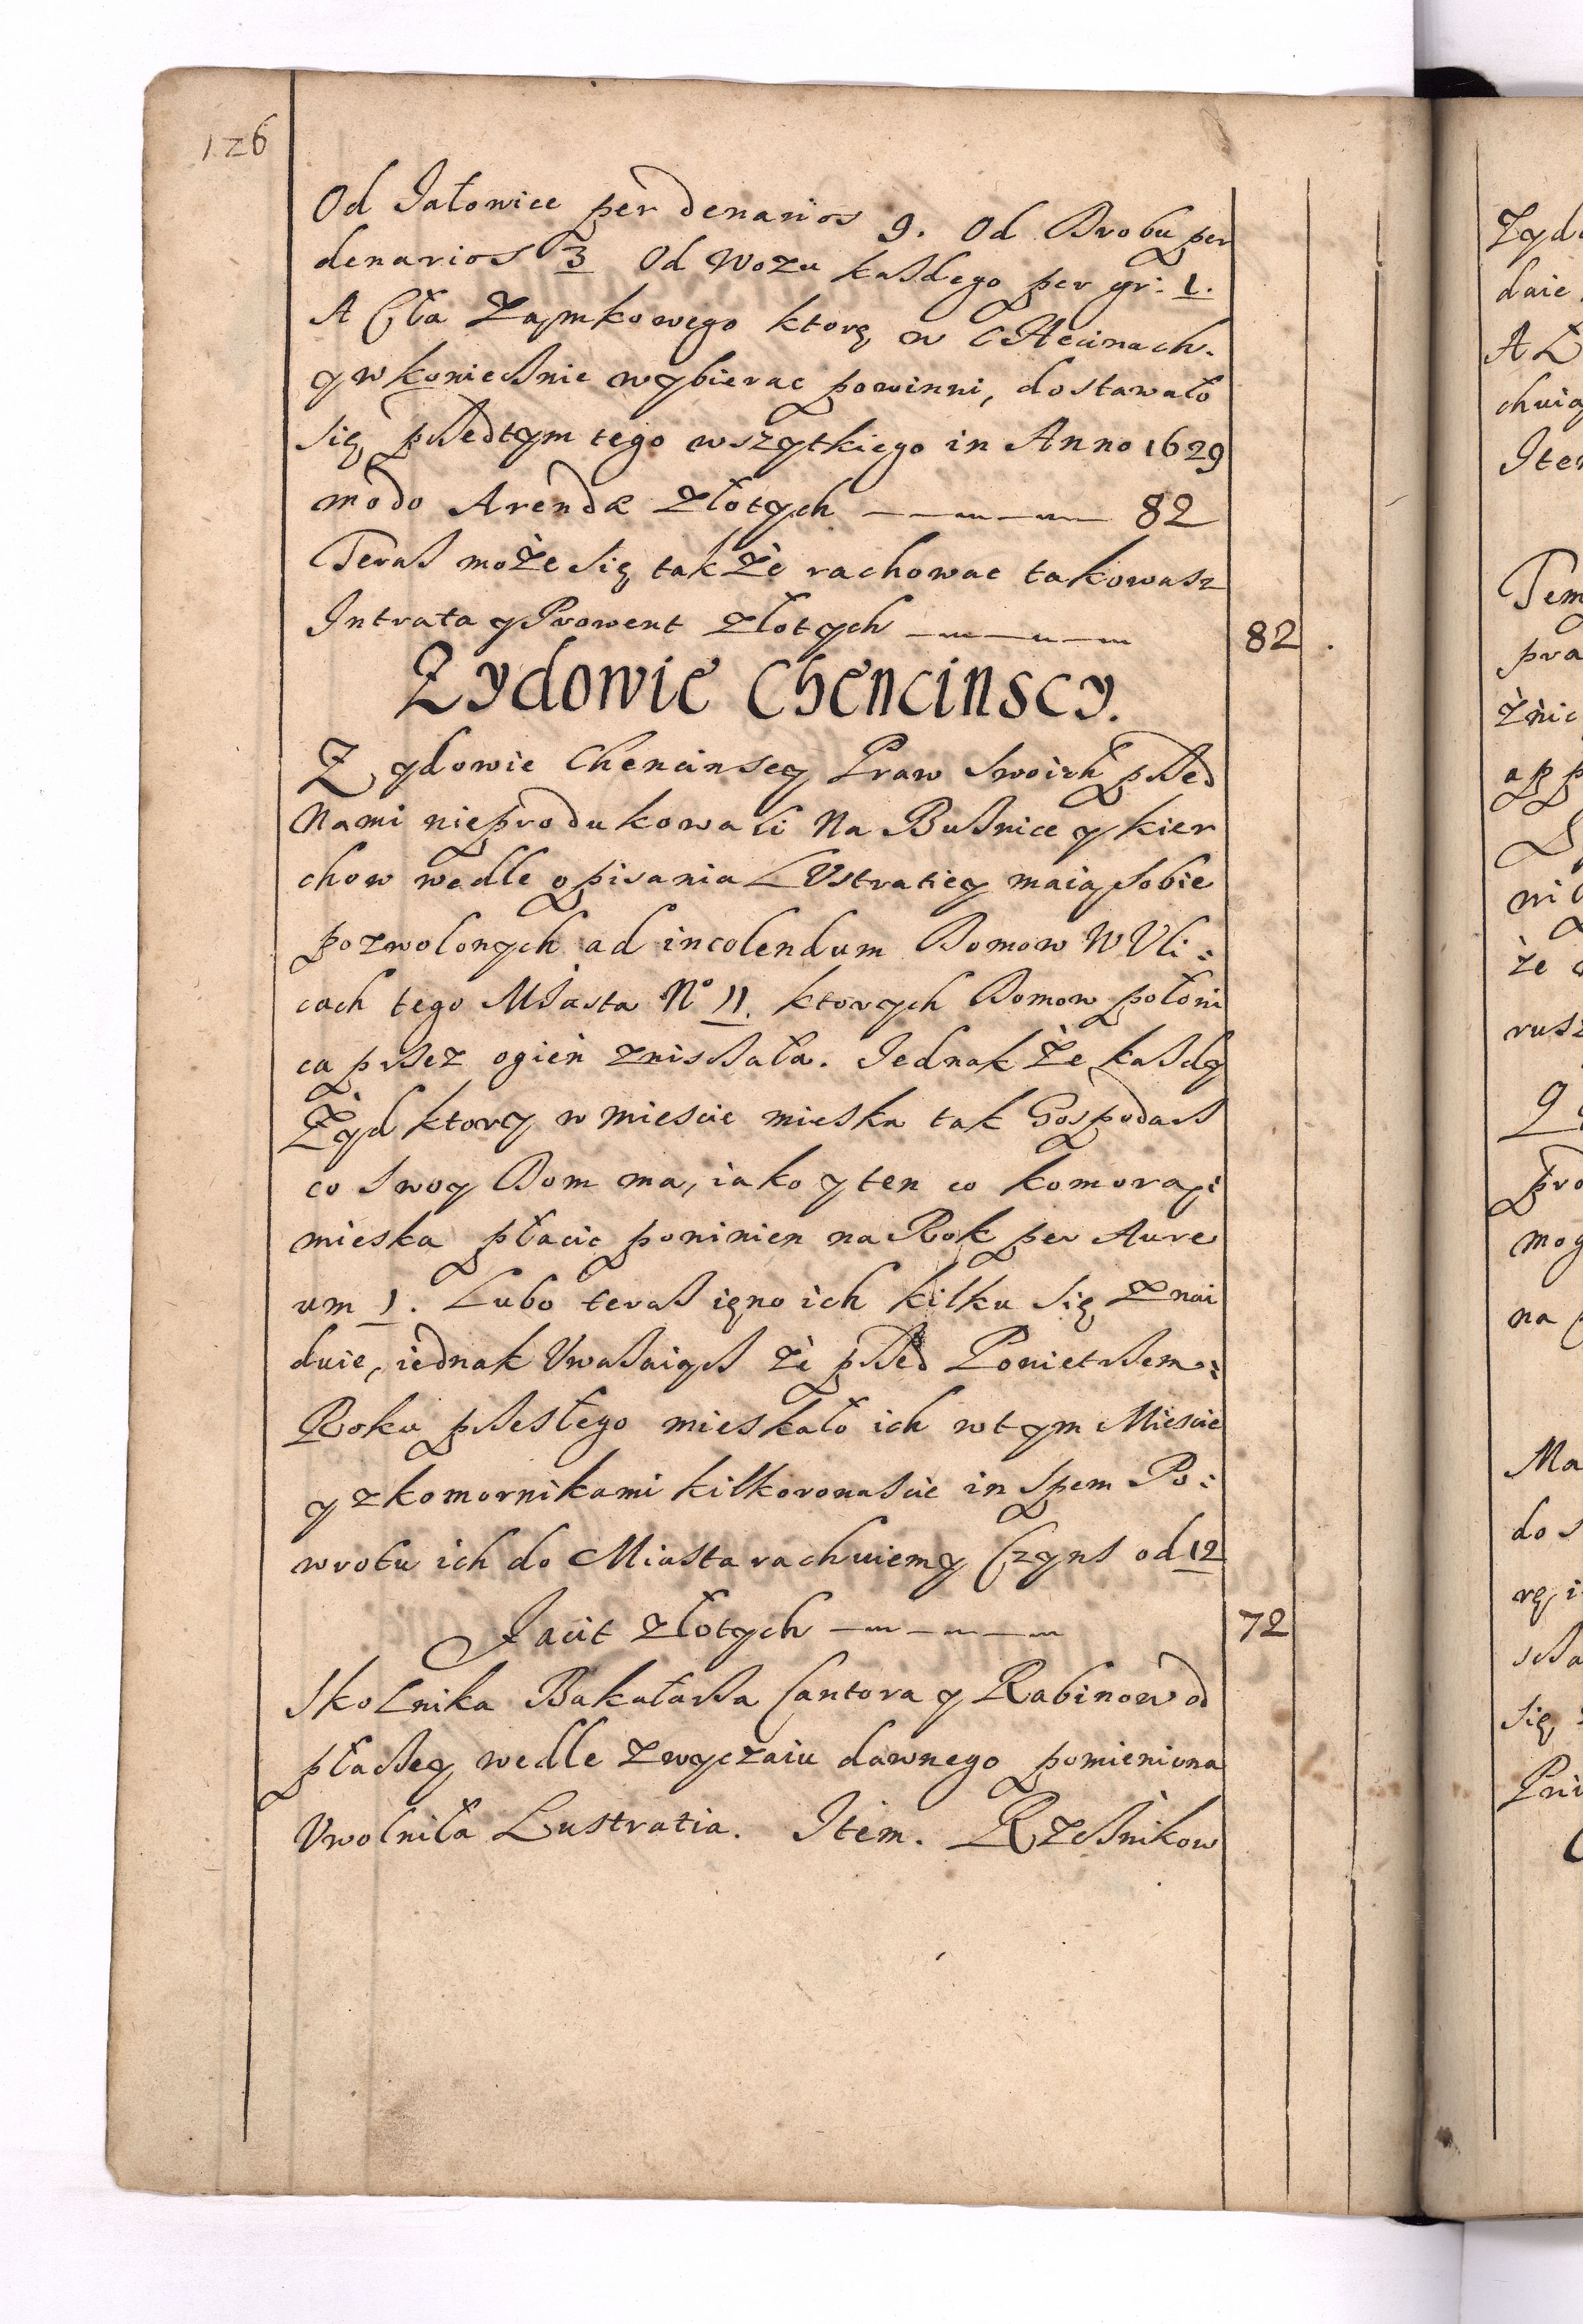 126
Od Jałowice per denarios 9. Od Drobu per
denarios 3 Od Wozu kasdego per gr: 1.
A Cła Zamkowego ktorę w CHecinach.
y w koniesnie wybierac powinni, dostawało
się przedtym tego wszytkiego in Anno 1629
modo Arendæ Złotych 82
Teras może się także rachowac takowasz
Intrata y Prowent złotych 82.
Zydowie Chencinscy.
Zydowie Chencinscy Praw swoich przed
Nami nieprodukowali Na Busnice y kier
chow wedle opisania LVstratiey maią sobie
pozwolonych ad incolendum Domow W Vli:
cach tego Miasta No 11. ktorych Domow połowi
ca przez ogień znissała. Jednak że kasdy
Żyd ktory w miescie mieska tak Gospodarz
co swoy Dom ma, iako y ten co komorą:
mieska płacic powinien na Rok per Aure
um 1. Lubo teras ięno ich kilku się znai
duie, iednak Vwasaiąs że przed Powietrzem:
Roku przesłego mieskało ich w tym Miescie
y z komornikami kilkoronascie in spem Po:
wrotu ich do Miasta rachuiemy Czyns od 12
Facit złotych 72
Skolnika Bakałarza Cantora y Rabinow od
płacey wedle zwyczaiu dawnego pomieniona
Vwolniła Lustratia. Item. Rzesnikow